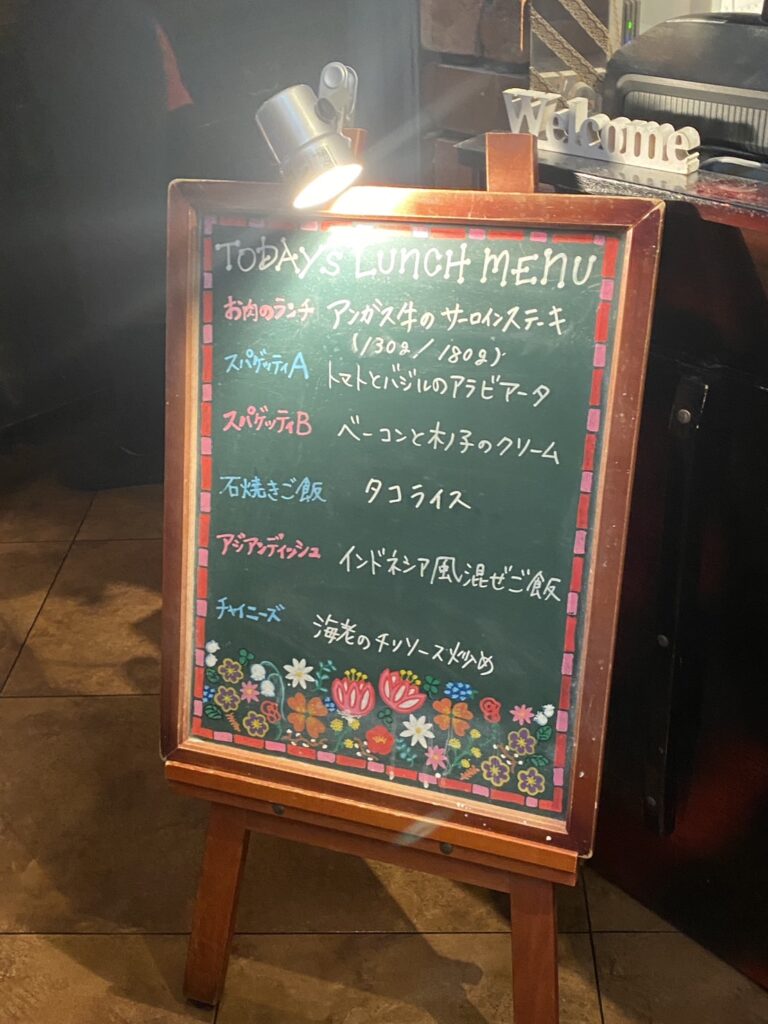 Welcome
TODAY's LUNCH MENU
お肉のランチ アンガス牛のサーロインステーキ
(130g/180g)
スパゲッティA トマトとバジルのアラビアータ
スパゲッティB ベーコンと木ノ子のクリーム
石焼きご飯 タコライス
アジアンディッシュ インドネシア風混ぜご飯
チャイニーズ 海老のチリソース炒め